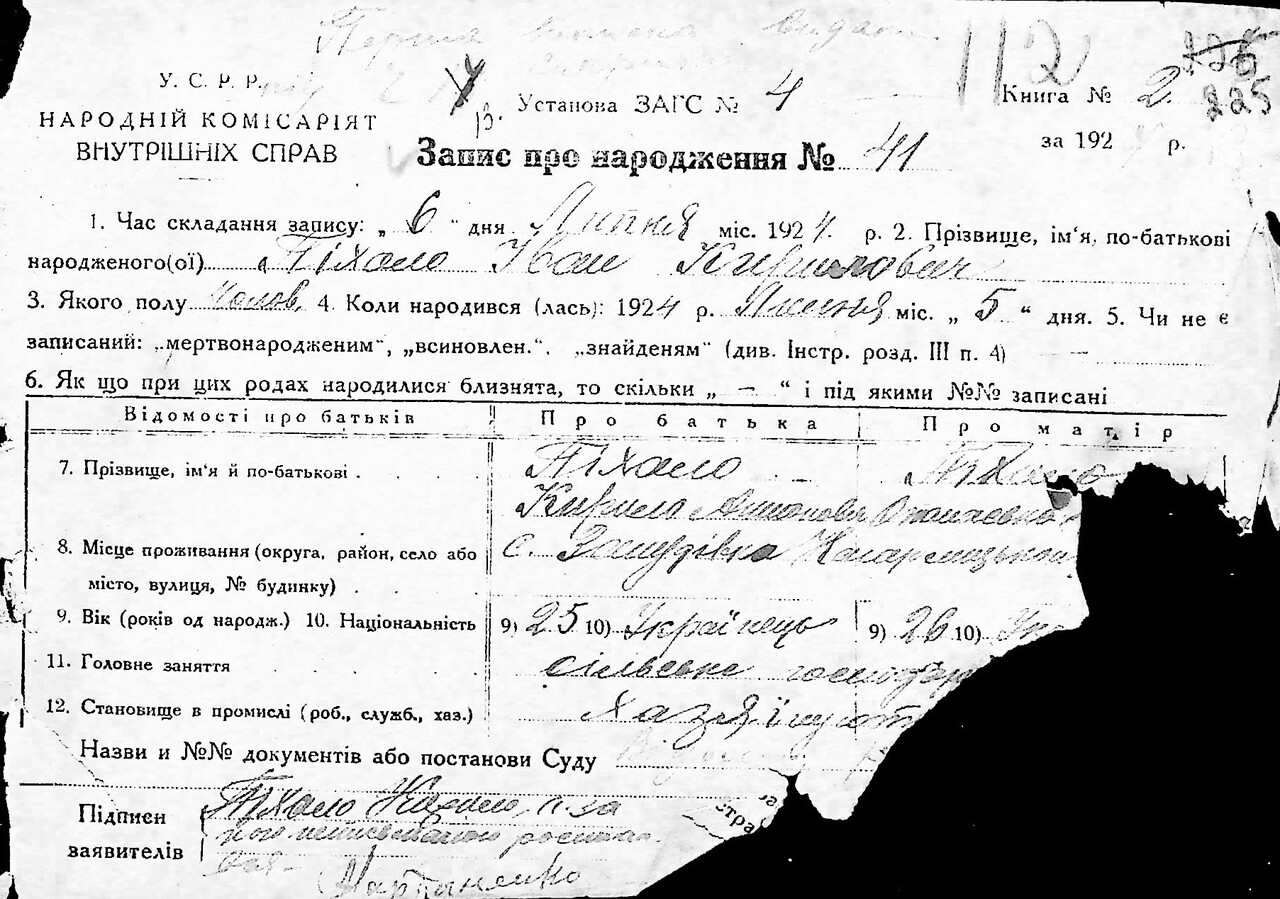 Перша виписка видана
112
225
225
У. С. Р. Р.
Установа ЗАГС № 4
Книга № 2
НАРОДНІЙ КОМІСАРІЯТ
ВНУТРІШНІХ СПРАВ
за 192 р.
Запис про народження № 41
1. Час складання запису: „ 6 “ дня Липня міс. 1924 р. 2. Прізвище, ім‘я, по-батькові
народженого(ої) Піхало Іван Кирилович
3. Якого полу чолов. 4. Коли народився (лась): 1924 р. Липня міс. „ 5 “ дня. 5. Чи не є
записаний: „мертвонародженим“, „всиновлен.“, „знайденям“ (див. Інстр. розд. III п. 4) —
6. Як що при цих родах народилися близнята, то скільки „ — “ і під якими №№ записані
Відомості про батьків Про батька Про матір
7. Прізвище, ім‘я й по-батькові Піхало Піхало
Кирило
8. Місце проживання (округа, район, село або с.
місто, вулиця, № будинку)
9. Вік (років од народж.) 10. Національність 9) 25 10) Українець 9) 26 10) Ук
11. Головне заняття сільське господар
12. Становище в промислі (роб., служб., хаз.) хазяїнуют
Назви и №№ документів або постанови Суду
Підписи Піхало Кирило, а за
заявителів його неписьменого роспи